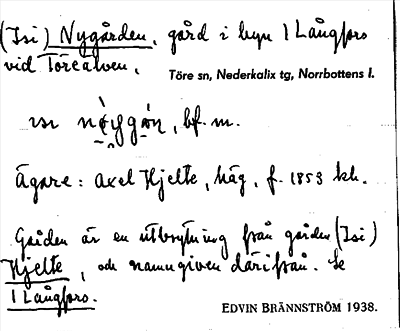 (Isi) Nygården, gård i byn 1 Långfors
vid Töreälven.
Töre sn, Nederkalix tg, Norrbottens l.
bf. m.
Ägare: Axel Hjelte, häg, f. 1853 kh.
Gården är en utbrytning från gården (Isi)
Hjelte, och namngiven därifrån. Se
1 Långfors.
EDVIN BRÄNNSTRÖM 1938.